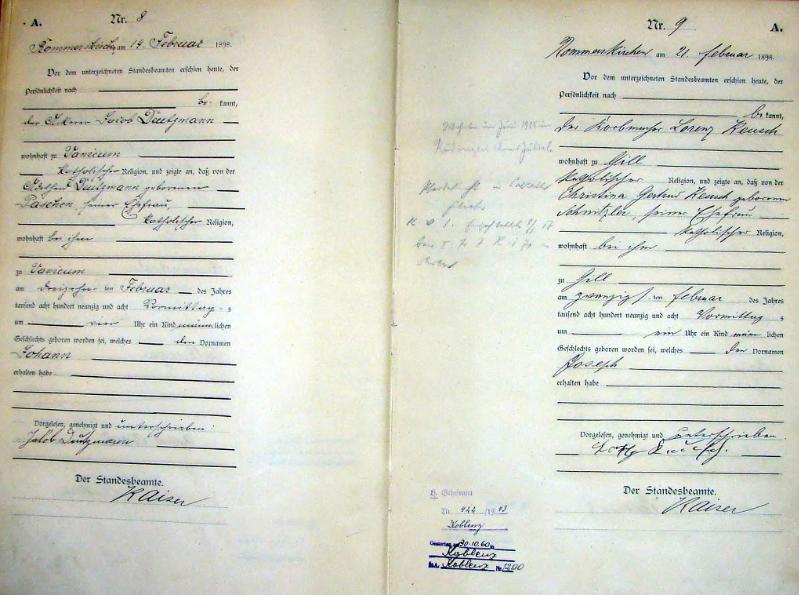 A.
Nr. 8
Rommerskirchen am 14 Februar 1898.
Vor dem unterzeichneten Standesbeamten erschien heute, der
Persönlichkeit nach
be kannt,
der Ackerer Jacob Deutzmann
wohnhaft zu Vanicum
katholischer Religion, und zeigte an, daß von der
Deutzmann geborenen
Paschen, seiner Ehefrau
katholischer Religion,
wohnhaft bei ihm
zu Vanicum
am dreizehn ten Februar des Jahres
tausend acht hundert neunzig und acht Vormittag s
um vier Uhr ein Kind männlichen
Geschlechts geboren worden sei, welches den Vornamen
Johann
erhalten habe
Vorgelesen, genehmigt und unterschrieben:
Jakob Deutzmann
Der Standesbeamte.
Kaiser
Nr. 9
A.
Rommerskirchen am 21. Februar 1898
Vor dem unterzeichneten Standesbeamten erschien heute, der
Persönlichkeit nach
be kannt,
der Korbmacher Lorenz Keusch
wohnhaft zu Gill
katholischer Religion, und zeigte an, daß von der
Christina Gertrud Keusch geborenen
Schnitzler, seiner Ehefrau
katholischer Religion,
wohnhaft bei ihm
zu Gill
am zwanzigsten Februar des Jahres
tausend acht hundert neunzig und acht Vormittag s
um ein Uhr ein Kind männlichen
Geschlechts geboren worden sei, welches den Vornamen
Joseph
erhalten habe
Vorgelesen, genehmigt und unterschrieben.
Der Standesbeamte.
Kaiser
Koblenz
30.10.60
Koblenz
Koblenz Nr. 1200